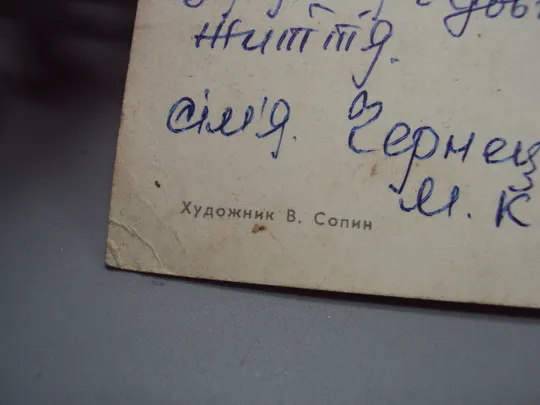 життя.
сім'я. Чернец
М. К
Художник В. Сопин